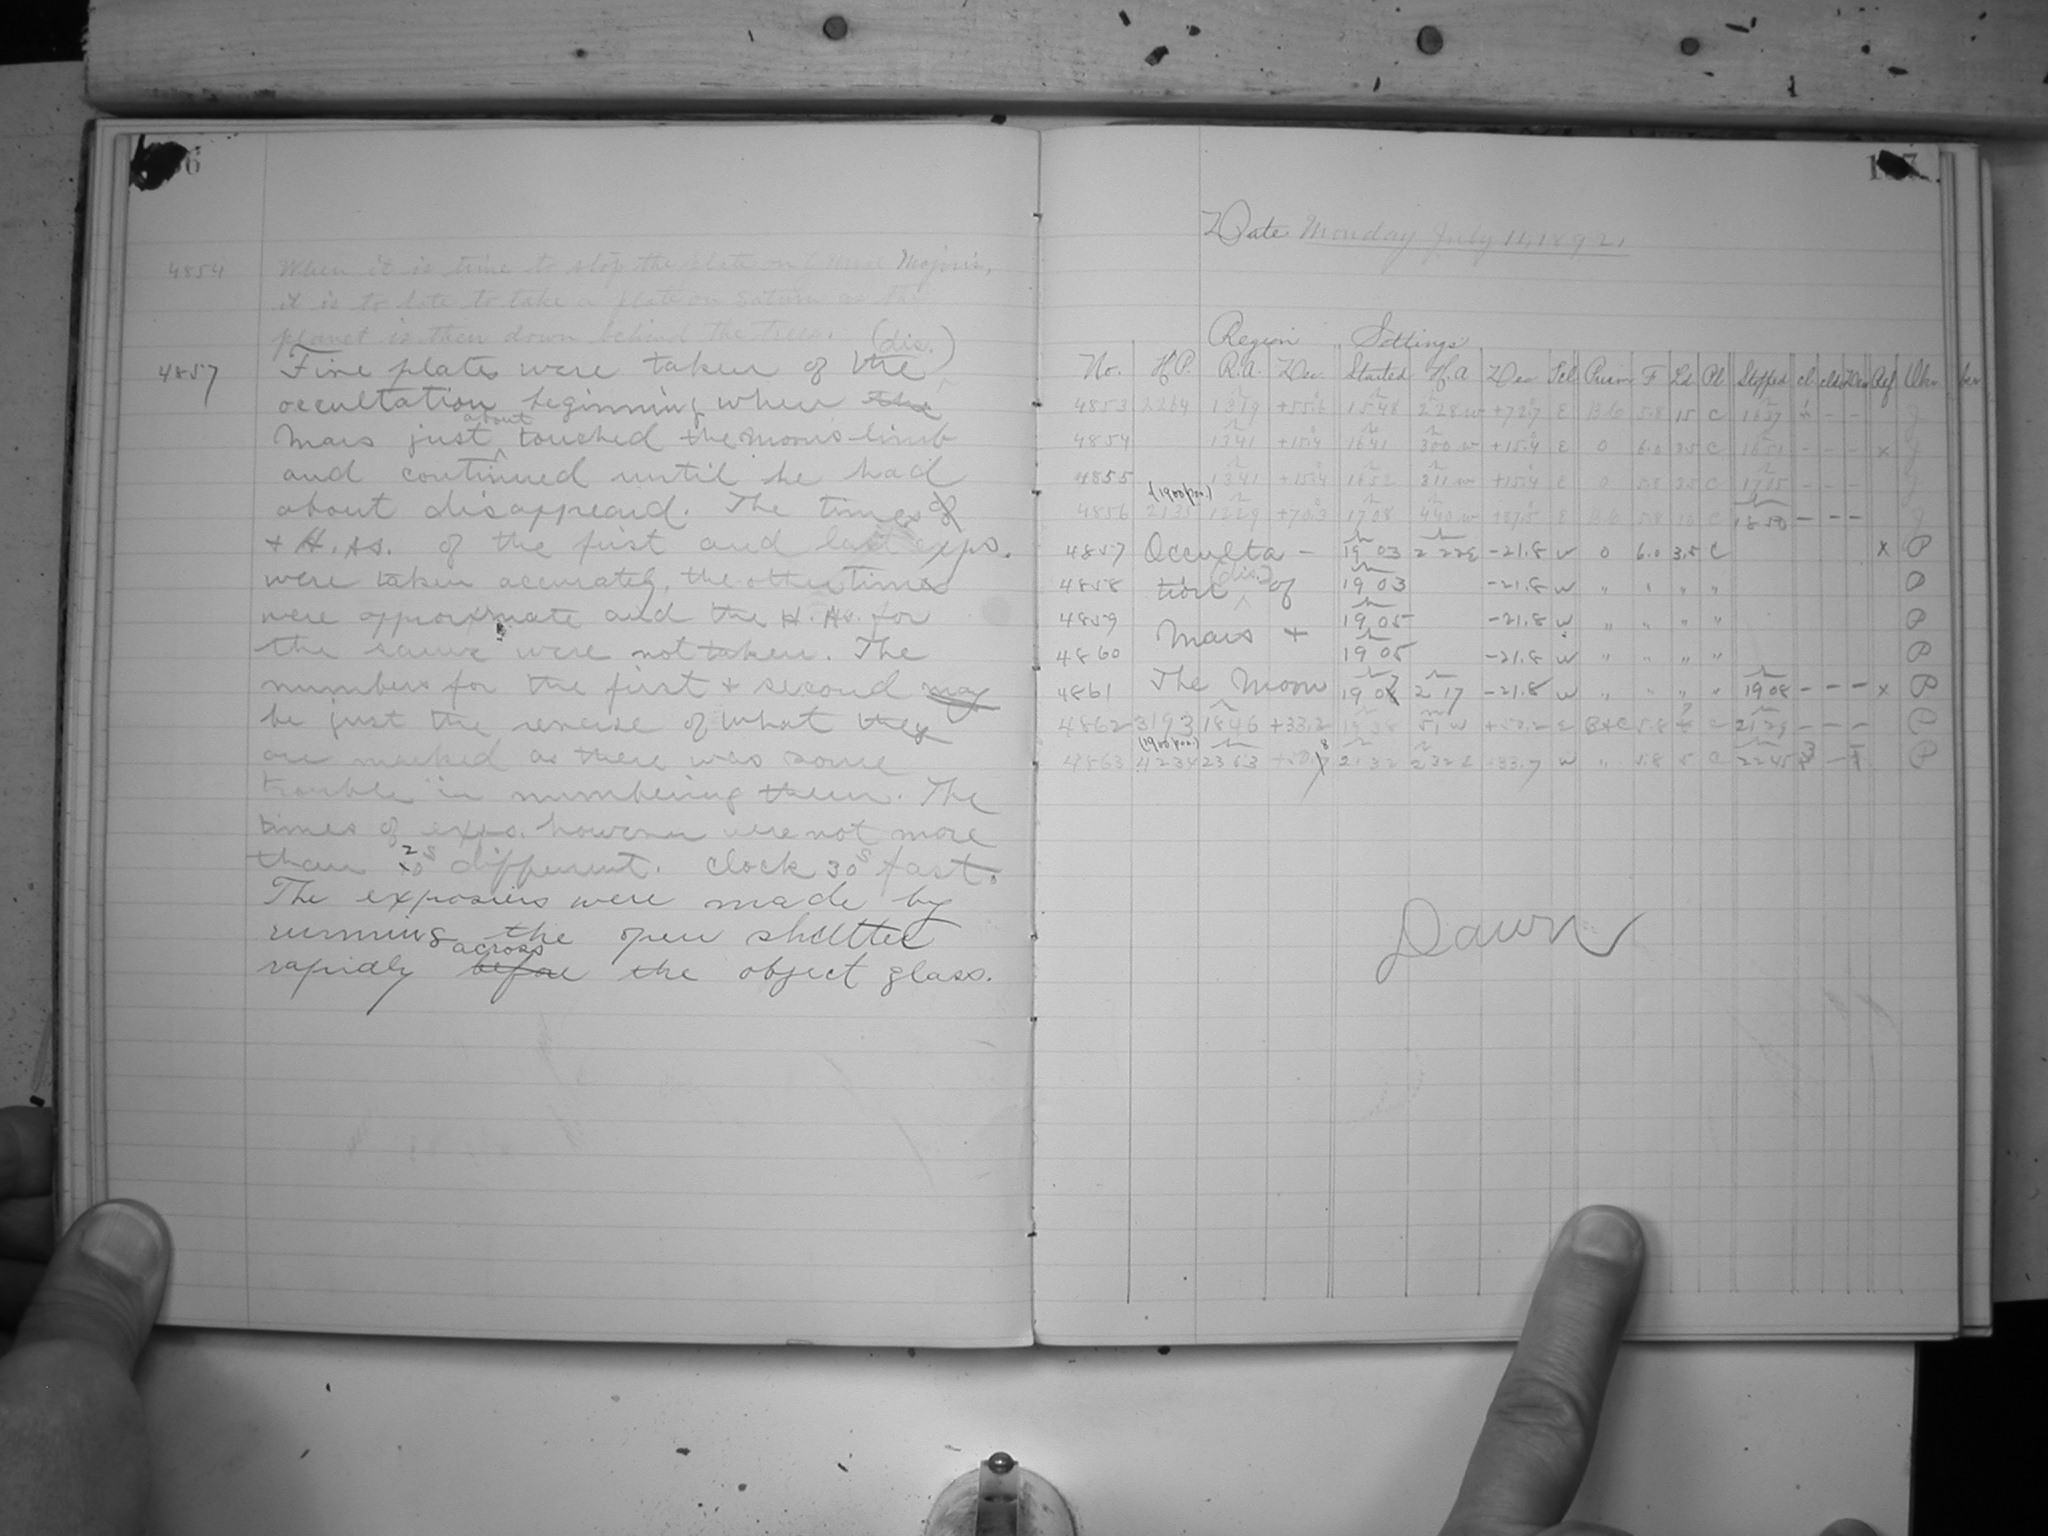 4854 When it is time to stop the plate on Ursae Majoris,
it is to late to take a plate on Saturn as the
planet is then down behind the trees. (dis.)
4857 Five plates were taken of the
occultation beginning when the
Mars just about touched the moon's limb
and continued until he had
about disappeard. The times of
+ H.As. of the first and last exps.
were taken accurately, the other times
were approximate and the H.As. for
the same were not taken. The
numbers for the first + second may
be just the reverse of what they
are marked as there was some
trouble in numbering them. The
times of exps. however were not more
than 20s different. Clock 30s fast.
The exposiers were made by
running the open shutter
rapidly before across the object glass.
137
Date Monday July 11, 1892.
Region Settings
No. H.P. R.A. Dec. Started H.A Dec Tel Prism F Ld Pl Stopped cl clk Dew Ref Obr
4853 2264 1319 +55.6 1548 228w +72.7 E 5.8 15 C 1637 - - J
4854 1341 +15.4 1641 300w +15.4 E 0 6.0 35 C 1651 - - - x J
4855 1341 +15.4 1652 311w +15.4 E 0 5.8 35 C 1715 - - - J
(1900 pos.)
4856 2135 1229 +70.3 1708 440w +87.5 E 5.8 10 C 1850 - - - J
4857 Occulta- 19 03 2 22E -21.8 w 0 6.0 3.5 C x P
4858 tion (dis.) of 19 03 -21.8 w " " " " P
4859 19 05 -21.8 w " " " " P
Mars +
4860 19 05 -21.8 w " " " " P
4861 The Moon 1907 2 17 -21.8 w " " " " 1908 - - - x P
4862 3193 1846 +33.2 1838 51w +50.2 E B+C 5.8 C 2129 - - - P
(1900 pos.)
4863 4234 2353 2132 232E 33.7 w " 5.8 5 C 2245 - P
Dawn